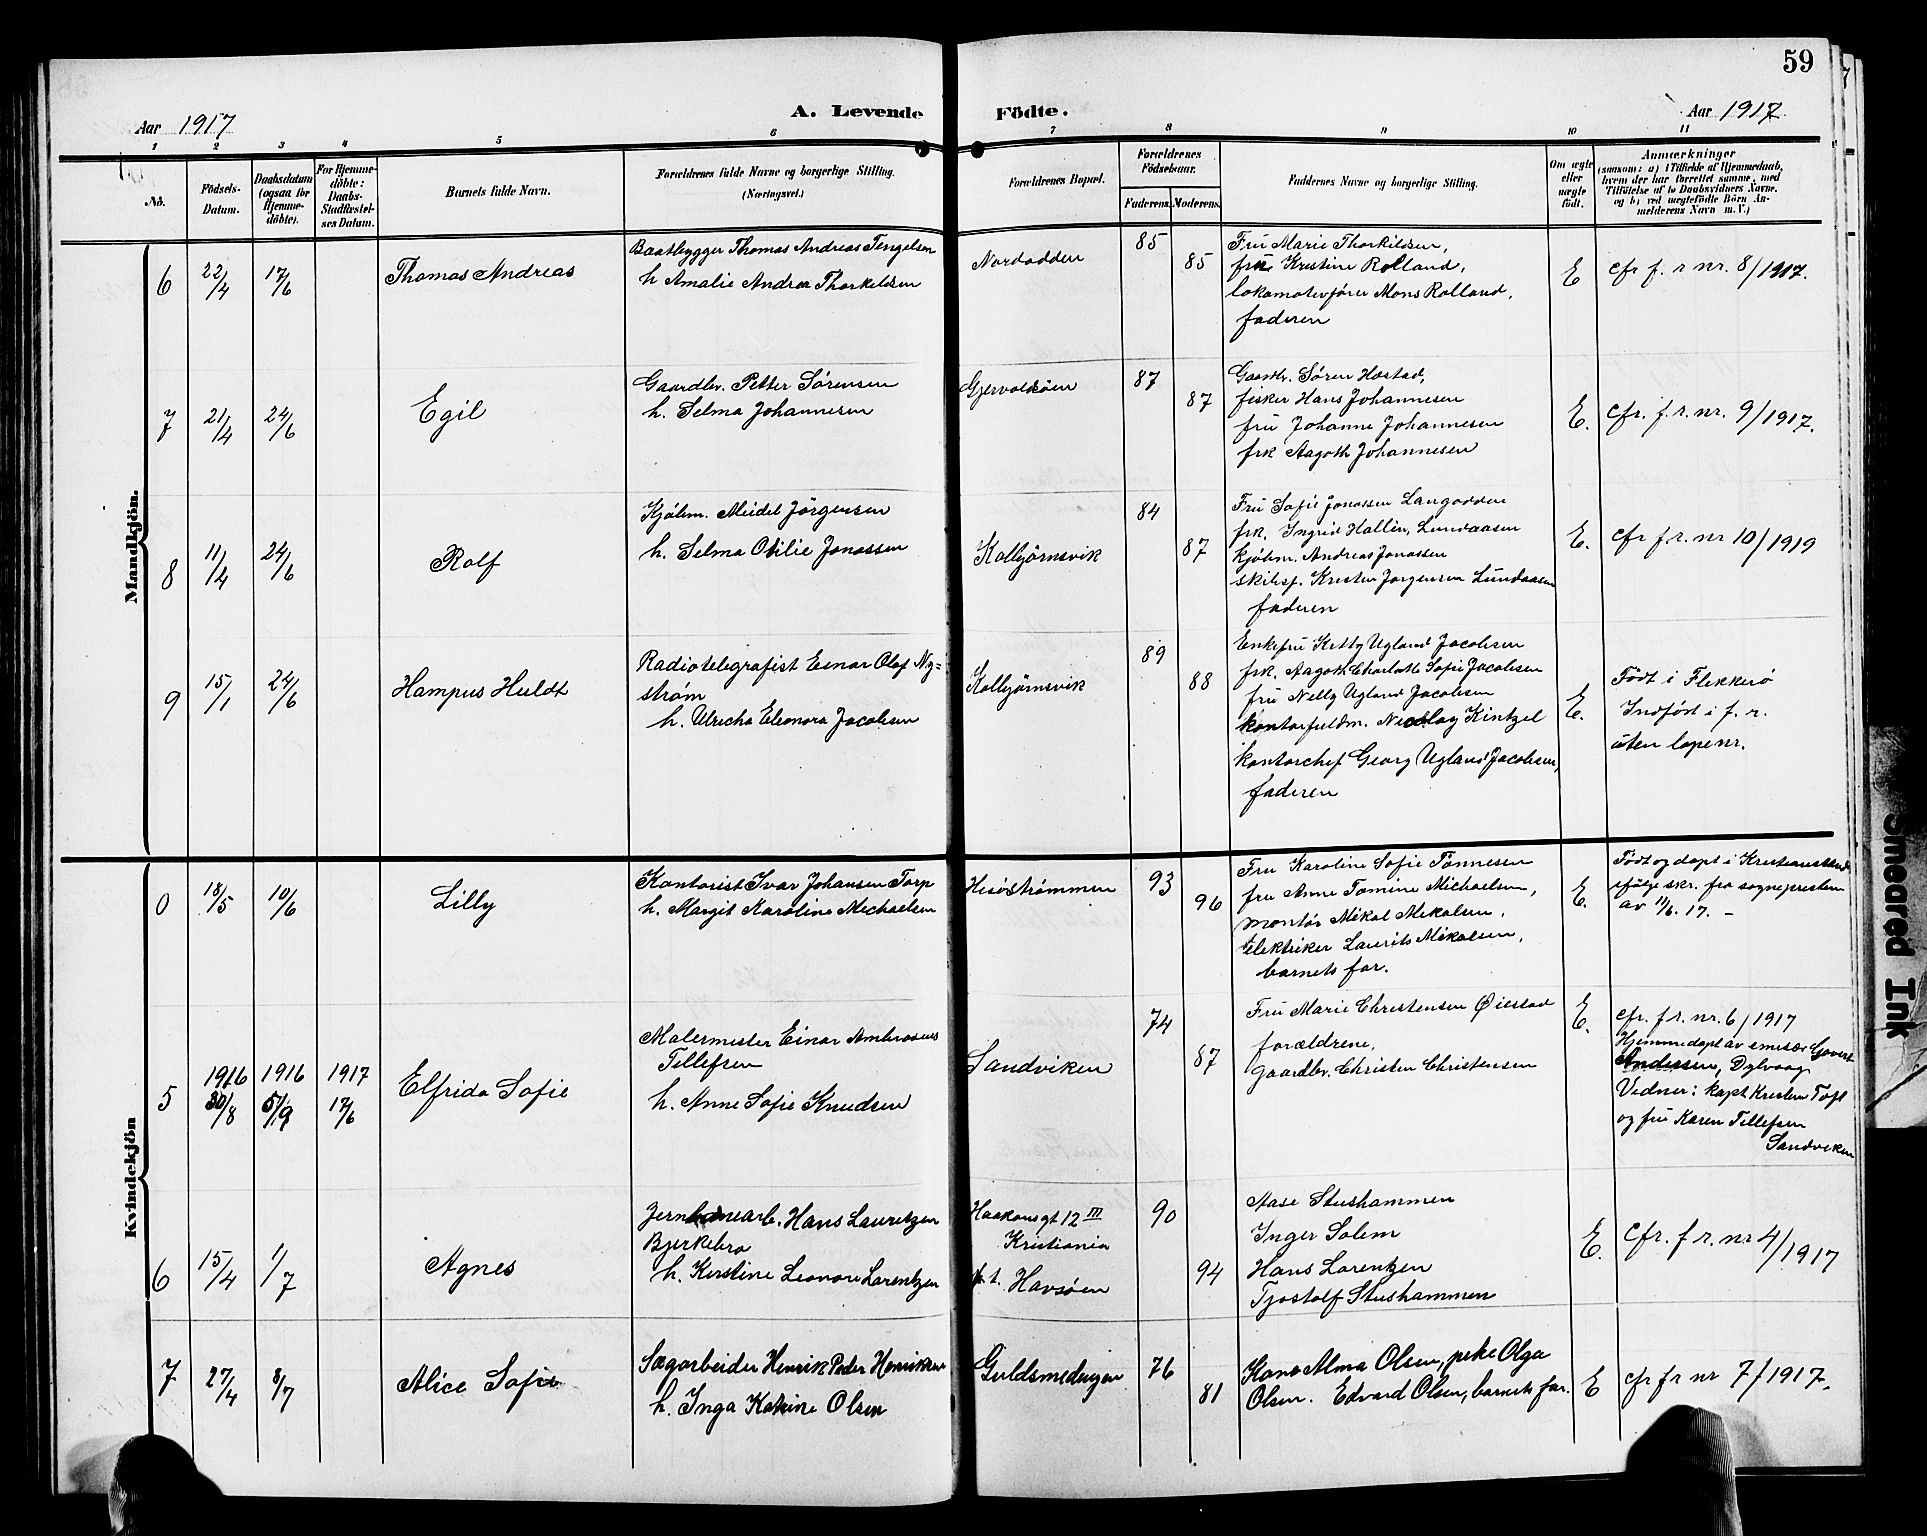 59
A. Levende Födte.
Aar 1917
Aar 1917
1 2 3 4 5 6 7 8 9 10 11
No.
Födsels-
Datum.
Daabsdatum
(ogsaa for
Hjemme-
döbte).
For Hjemme-
döbte:
Daabs-
Stadfæstel-
ses Datum.
Barnets fulde Navn.
Forældrenes fulde Navne og borgerlige Stilling.
(Næringsvei.)
Forældrenes Bopæl.
Forældrenes
Födselsaar.
Faderens. Moderens.
Faddernes Navne og borgerlige Stilling.
Om ægte
eller
uægte
födt.
Anmærkninger
(saasom: a) i Tilfælde af Hjemmedaab,
hvem der har forrettet samme, med
Tilföielse af to Daabsvidners Navne.
og b) ved uægtefödte Börn An-
melderens Navn m. V.)
Mandkjön.
6 22/4 17/6 Thomas Andreas
Baatbygger Thomas Andreas Tengelsen
h. Amalie Andrea Thorkildsen
Nordodden
85
85
Fru Marie Thorkildsen,
fru Kristine Rolland,
lokomotivfører Mons Rolland,
faderen
E cfr f. r nr. 8/1917.
7 21/4 24/6 Egil
Gaardbr. Petter Sørensen
h. Selma Johannesen
Gjervoldsøen
87
87
Gaardbr. Søren Hæstad,
fisker Hans Johannesen
fru Johanne Johannesen
frk Aagoth Johannesen
E. cfr. f. r. nr. 9/1917.
8 11/4 24/6 Rolf
Kjølm. Meidel Jörgensen
h. Selma Otilie Jonassen
Kolbjørnsvik
84
87
Fru Sofie Jonassen Langodden
frk. Ingrid Hallin, Lundaasen
kjølm. Andreas Jonassen
skibsf. Kristen Jorgensen Lundaasen
faderen
E. cfr f. r. nr 10/1919
9 15/1 24/6 Hampus Huldt
Radiotelegrafist Einar Olof Ny=
strøm
h. Ulricha Eleonora Jacobsen
Kolbjørnsvik
89
88
Enkefru Kitty Ugland Jacobsen
frk. Aagoth Charlotte Sofie Jacobsen
fru Nelly Ugland Jacobsen
kontorfuldm. Nicolay Kintzel
kontorchef Georg Ugland Jacobsen,
faderen
E.
Født i Flekkerø
Indført i f. r.
uten løpenr.
Kvindekjön
0 18/5 10/6 Lilly
Kontorist Ivar Johansen Torp
h. Margit Karoline Michaelsen
Hisøstrømmen
93
96
Fru Karoline Sofie Tønnesen
fru Anne Tomine Michaelsen,
montør Mikal Mikalsen,
Elektriker Laurits Mikalsen,
barnets far.
E.
Født og døpt i Kristianssand
ifølge skr. fra sognepresten
av 11/6. 17. –
5 1916 30/8 1916 5/9 1917 17/6 Elfrida Sofie
Malermester Einar Ambrosius
Tellefsen
h. Anne Sofie Knudsen
Sandviken
74
87
Fru Marie Christensen Øiestad
forældrene,
gaardbr. Christen Christensen
E.
cfr. f. r. nr. 6/1917
Hjemmedøpt av emissær Govert
Andersen, Dybvaag
Vidner: kapt Kristen
og fru Karen Tellefsen
Sandviken
6 15/4 1/7 Agnes
Hans Lauritzen
Bjerkebro
h. Kirstine Leonore Lorentzen
Haakonsgt 12 III
Kristiania
p.t. Havsøen
90
94
Aase Stushammen
Inger Solem
Hans Lorentzen
Tjostolf Stushammen
E. Cfr. f. r. nr 4/1917
7 27/4 8/7 Alice Sofie
Sagarbeider Henrik Peder Henriksen
h. Inga Katrine Olsen
Guldsmedengen
76
81
Kone Alma Olsen, pike Olga
Olsen. Edvard Olsen, barnets far.
E cfr fr nr 7/1917.
Smeared Ink